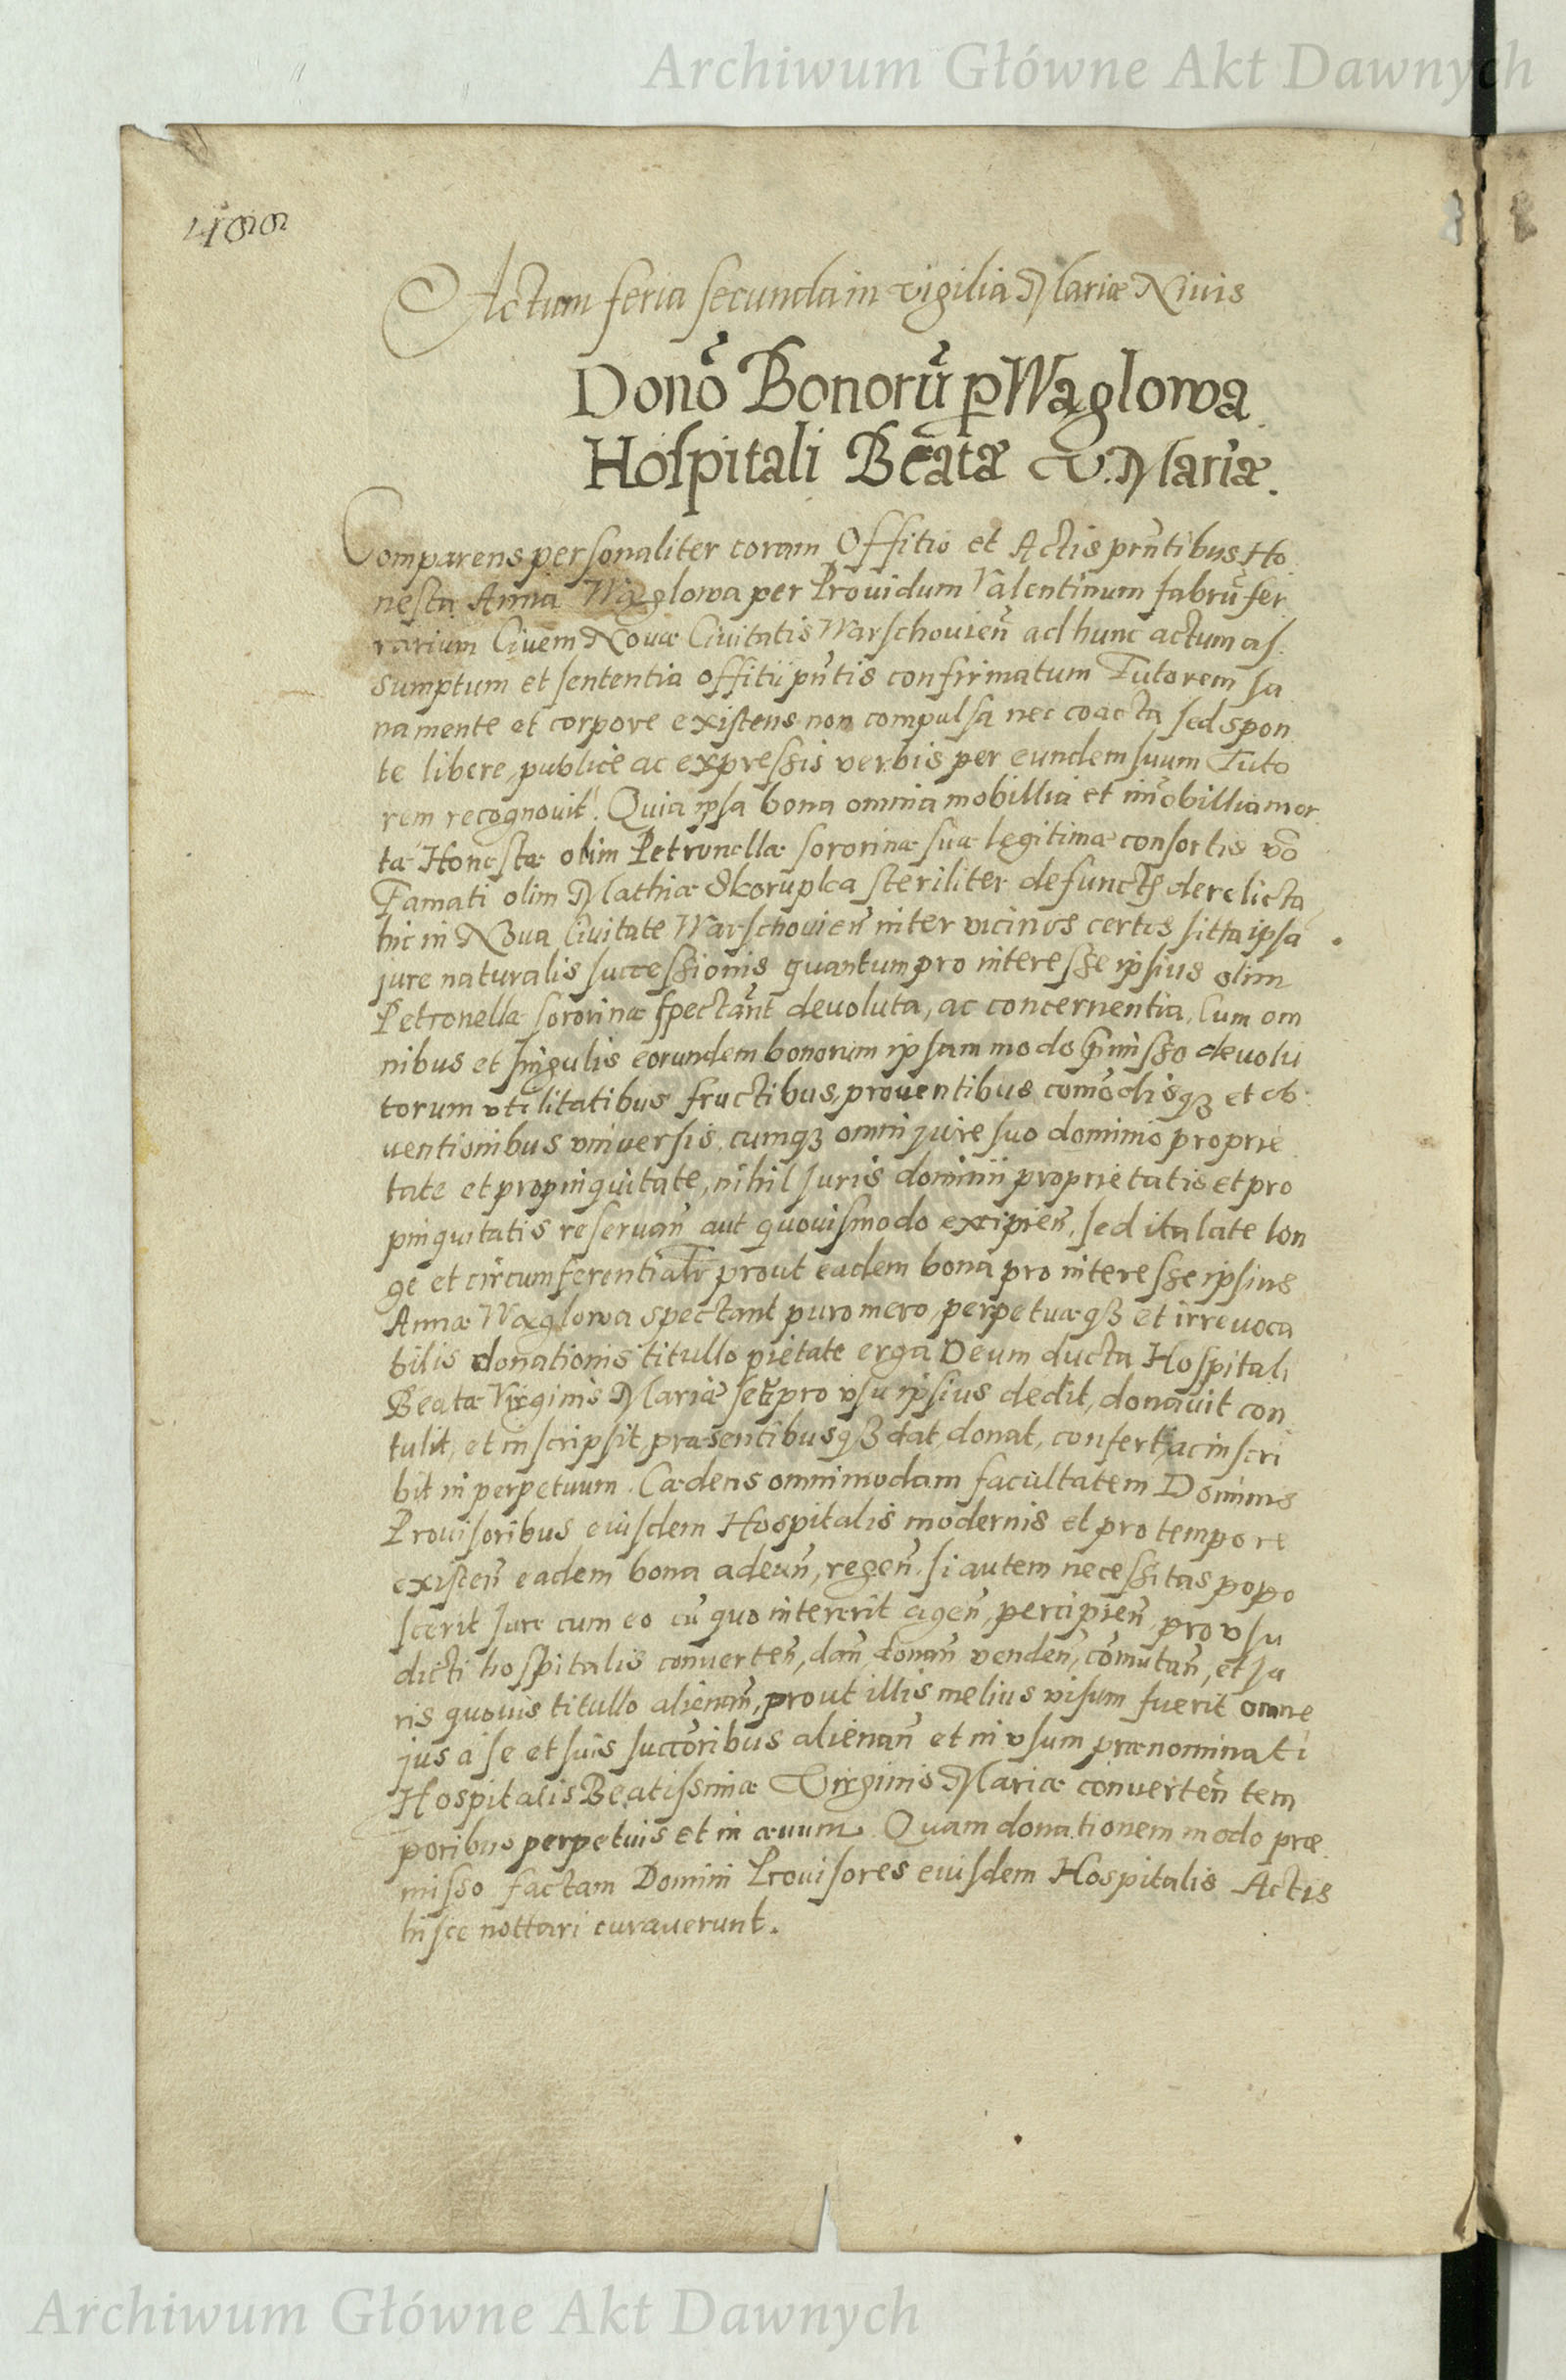 Archiwum Główne Akt Dawnych
Actum feria secunda in vigilia Mariæ Nivis
Donõ Bonorũ p Wąglowa
Hospitali Beatæ V. Mariæ.
Comparens personaliter coram Offitio et Actis prñtibus Ho
nesta Anna Wąglowa per Prouidum Valentinum fabrũ fer
rarium Ciuem Nouæ Ciuitatis Warschouieñ ad hunc actum as
sumptum et sententia offitii pñtis confirmatum Tutorem sa
na mente et corpore existens non compulsa nec coacta sed spon
te libere publice ac expressis verbis per eundem suum Tuto
rem recognouit. Quia ipsa bona omnia mobillia et im̃obillia mor
tæ Honestæ olim Petronellæ sororinæ suæ legitimæ consortis võ
Famati olim Mathiæ Skorupka steriliter defunctę derelicta
hic in Noua Ciuitate Warschouień inter vicinos certis sitta ipsa
jure naturalis successionis quantum pro interesse ipsius olim
Petronellæ sororinæ spectãnt devoluta, ac concernentia, Cum om
nibus et singulis eorundem bonorum ipsam modo p̃misso devolu
torum vtilitatibus fructibus, prouentibus com̃odisqȝ et ob
uentionibus vniuersis, cumqȝ omni jure suo dominio proprie
tate et propinquitate, nihil juris dominii proprietatis et pro
pinquitatis reservañ aut quouismodo excipieñ, sed ita late lon
ge et circumferentialr prout eadem bona pro interesse ipsius
Annæ Wąglowa spectant puro mero, perpetuæqȝ et irreuoca
bilis donationis titullo pietate erga Deum ducta Hospitali
Beatæ Virginis Mariæ seu pro vsu ipsius dedit, donavit con
tulit, et inscripsit, præsentibusqȝ dat, donat, confert, ac inscri
bit in perpetuum. Cædens omnimodam facultatem Dominis
Prouisoribus eiusdem Hospitalis modernis et pro tempore
existeñ eadem bona adeuñ, regeñ, si autem necessitas popo
scerit Jure cum eo cũ quo intererit ageñ, percipieñ pro vsu
dicti hospitalis conuerteñ, dañ, donañ vendeñ, com̃utañ, et Ju
ris quouis titullo alienañ, prout illis melius visum fuerit omne
jus a se et suis succõribus alienañ et in vsum prænominati
Hospitalis Beatissimæ Virginis Mariæ conuerteñ tem
poribus perpetuis et in æuum. Quam donationem modo præ
misso factam Domini Prouisores eiusdem Hospitalis Actis
hisce nottari curauerunt.
Archiwum Główne Akt Dawnych